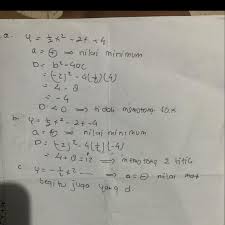 a. y = ½x² - 2x + 4
a = ⊕ ⇒ nilai minimum
D = b² - 4ac
= (-2)² - 4(½)(4)
= 4 - 8
= -4
D < 0 ⇒ tidak memotong sb x
b. y = ½x² - 2x - 4
a = ⊕ ⇒ nilai minimum
D = (-2)² - 4(½)(-4)
= 4 + 8 = 12 ⇒ memotong 2 titik
c. y = -½x² ⇒ a = ⊖ nilai mak
begitu juga yang d.